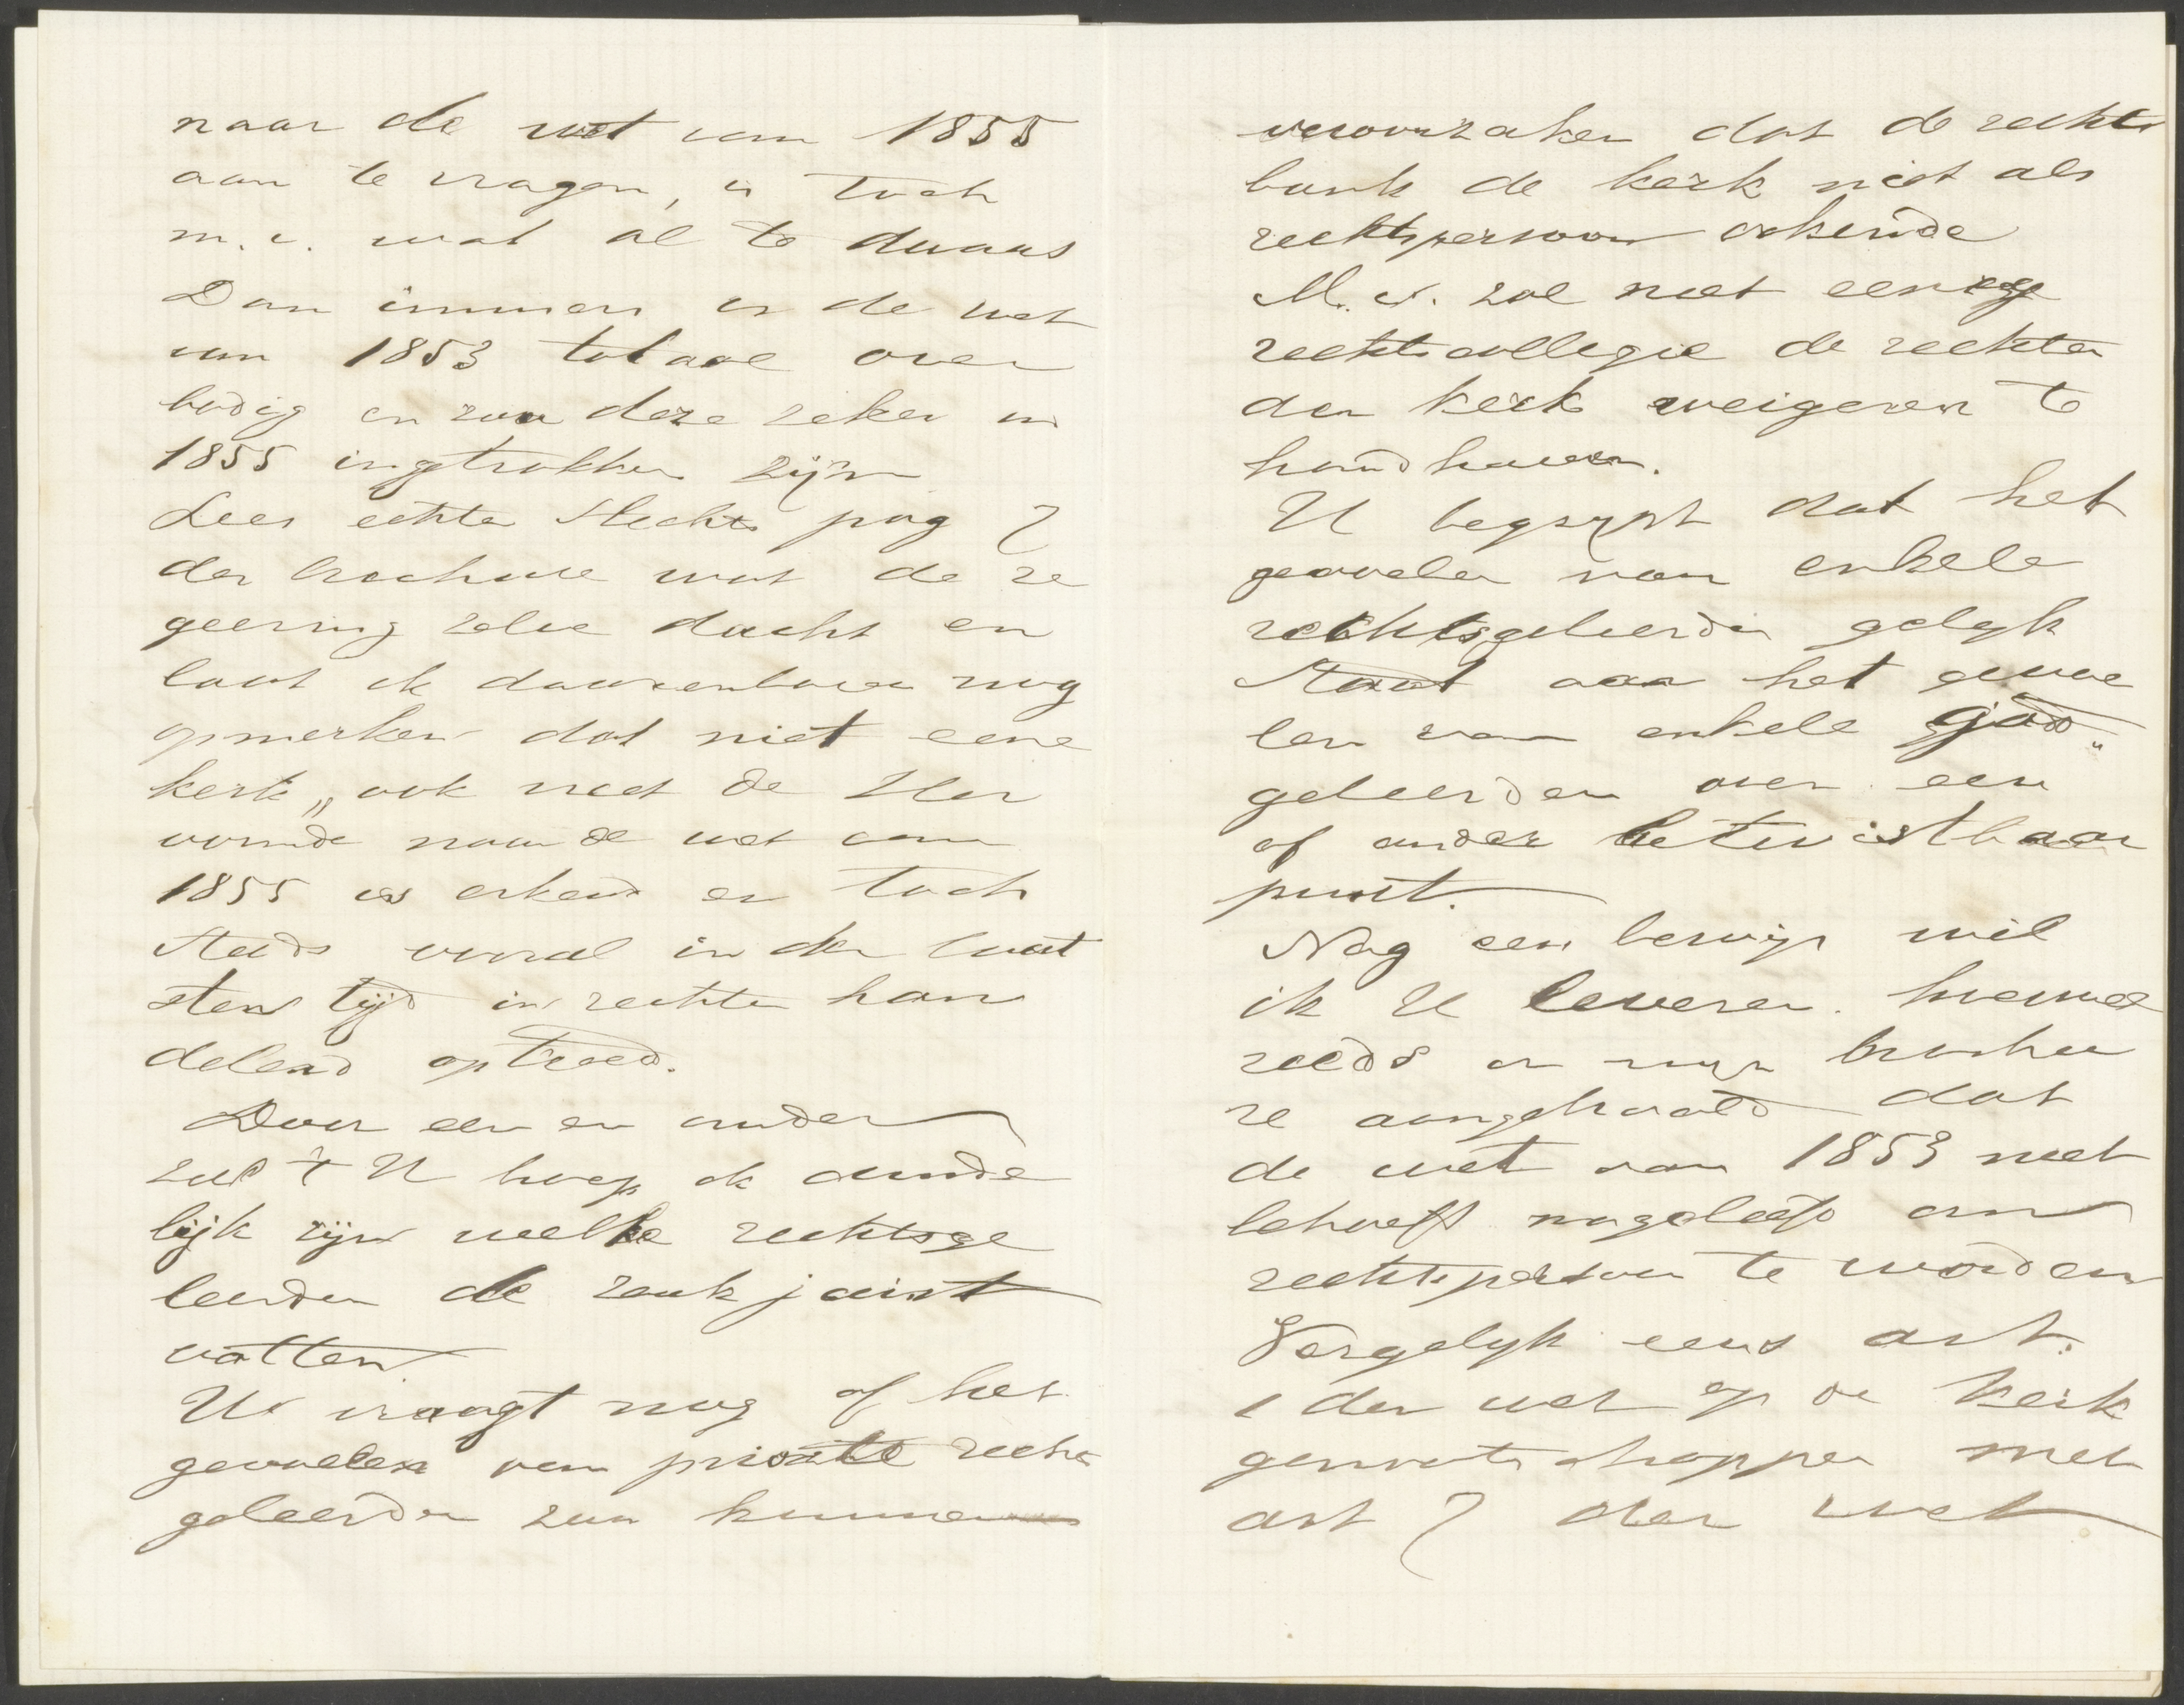 naar de wet van 1855
aan te vragen, is toch
m.i. wat al te dwaas
Dan immers is de wet
van 1853 totaal over
bodig en zou deze zeker in
1855 ingetrokken zijn
Lees echter slechts pag 7
der brochure wat de re
geering zelve dacht en
laat ik daarenboven nog
opmerken dat niet eene
kerk, ook niet de Her
vormde naar de wet van
1855 is erkend en toch
steeds vooral in den laat
sten tijd in rechten han
delend optreed.
Door een en ander
zal 't U hoop ik duide
lijk zijn welke rechtsge
leerden de zaak juist
vatten.
U vraagt nog of het
gevoelen van private rechts
geleerden zou kunnen
veroorzaken dat de rechts
bank de kerk niet als
rechtspersoon erkende
M.i. zal niet eenige
rechtscollegie de rechten
der kerk weigeren te
handhaven.
U begrijpt dat het
gevoelen van enkele
rechtsgeleerden gelyk
staat aan het gevoe
len van enkele god"
geleerden over een
of ander betwistbaar
punt.
Nog een bewijs wil
ik U leveren. hoewel
reeds in mijn brochu
re aangehaald dat
de wet van 1853 niet
behoeft nageleefd om
rechtspersoon te worden
Vergelyk eens art.
1 der wet op de Kerk
genootschappen met
art 7 der wet